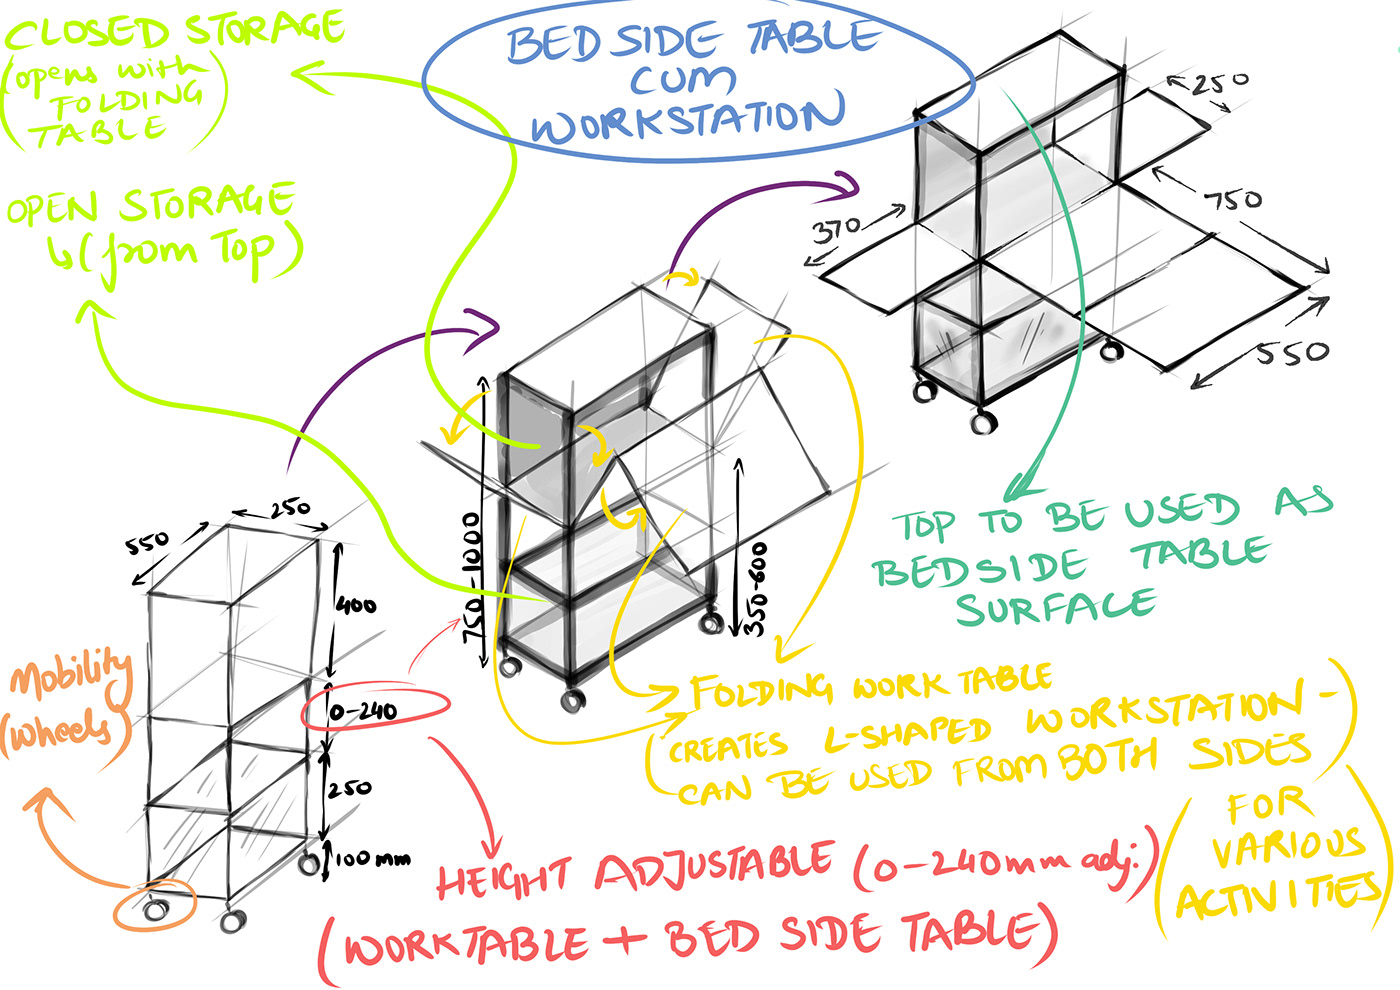 BED SIDE TABLE
CUM
WORKSTATION
CLOSED STORAGE
(opens with
FOLDING
TABLE)
OPEN STORAGE
↳(from Top)
250
370
750
550
250
550
400
0-240
250
100mm
750-1000
350-600
Mobility
(wheels)
TOP TO BE USED AS
BEDSIDE TABLE
SURFACE
FOLDING WORK TABLE
(CREATES L-SHAPED WORKSTATION-
CAN BE USED FROM BOTH SIDES)
(FOR
VARIOUS
ACTIVITIES)
HEIGHT ADJUSTABLE (0-240mm adj.)
(WORKTABLE + BED SIDE TABLE)